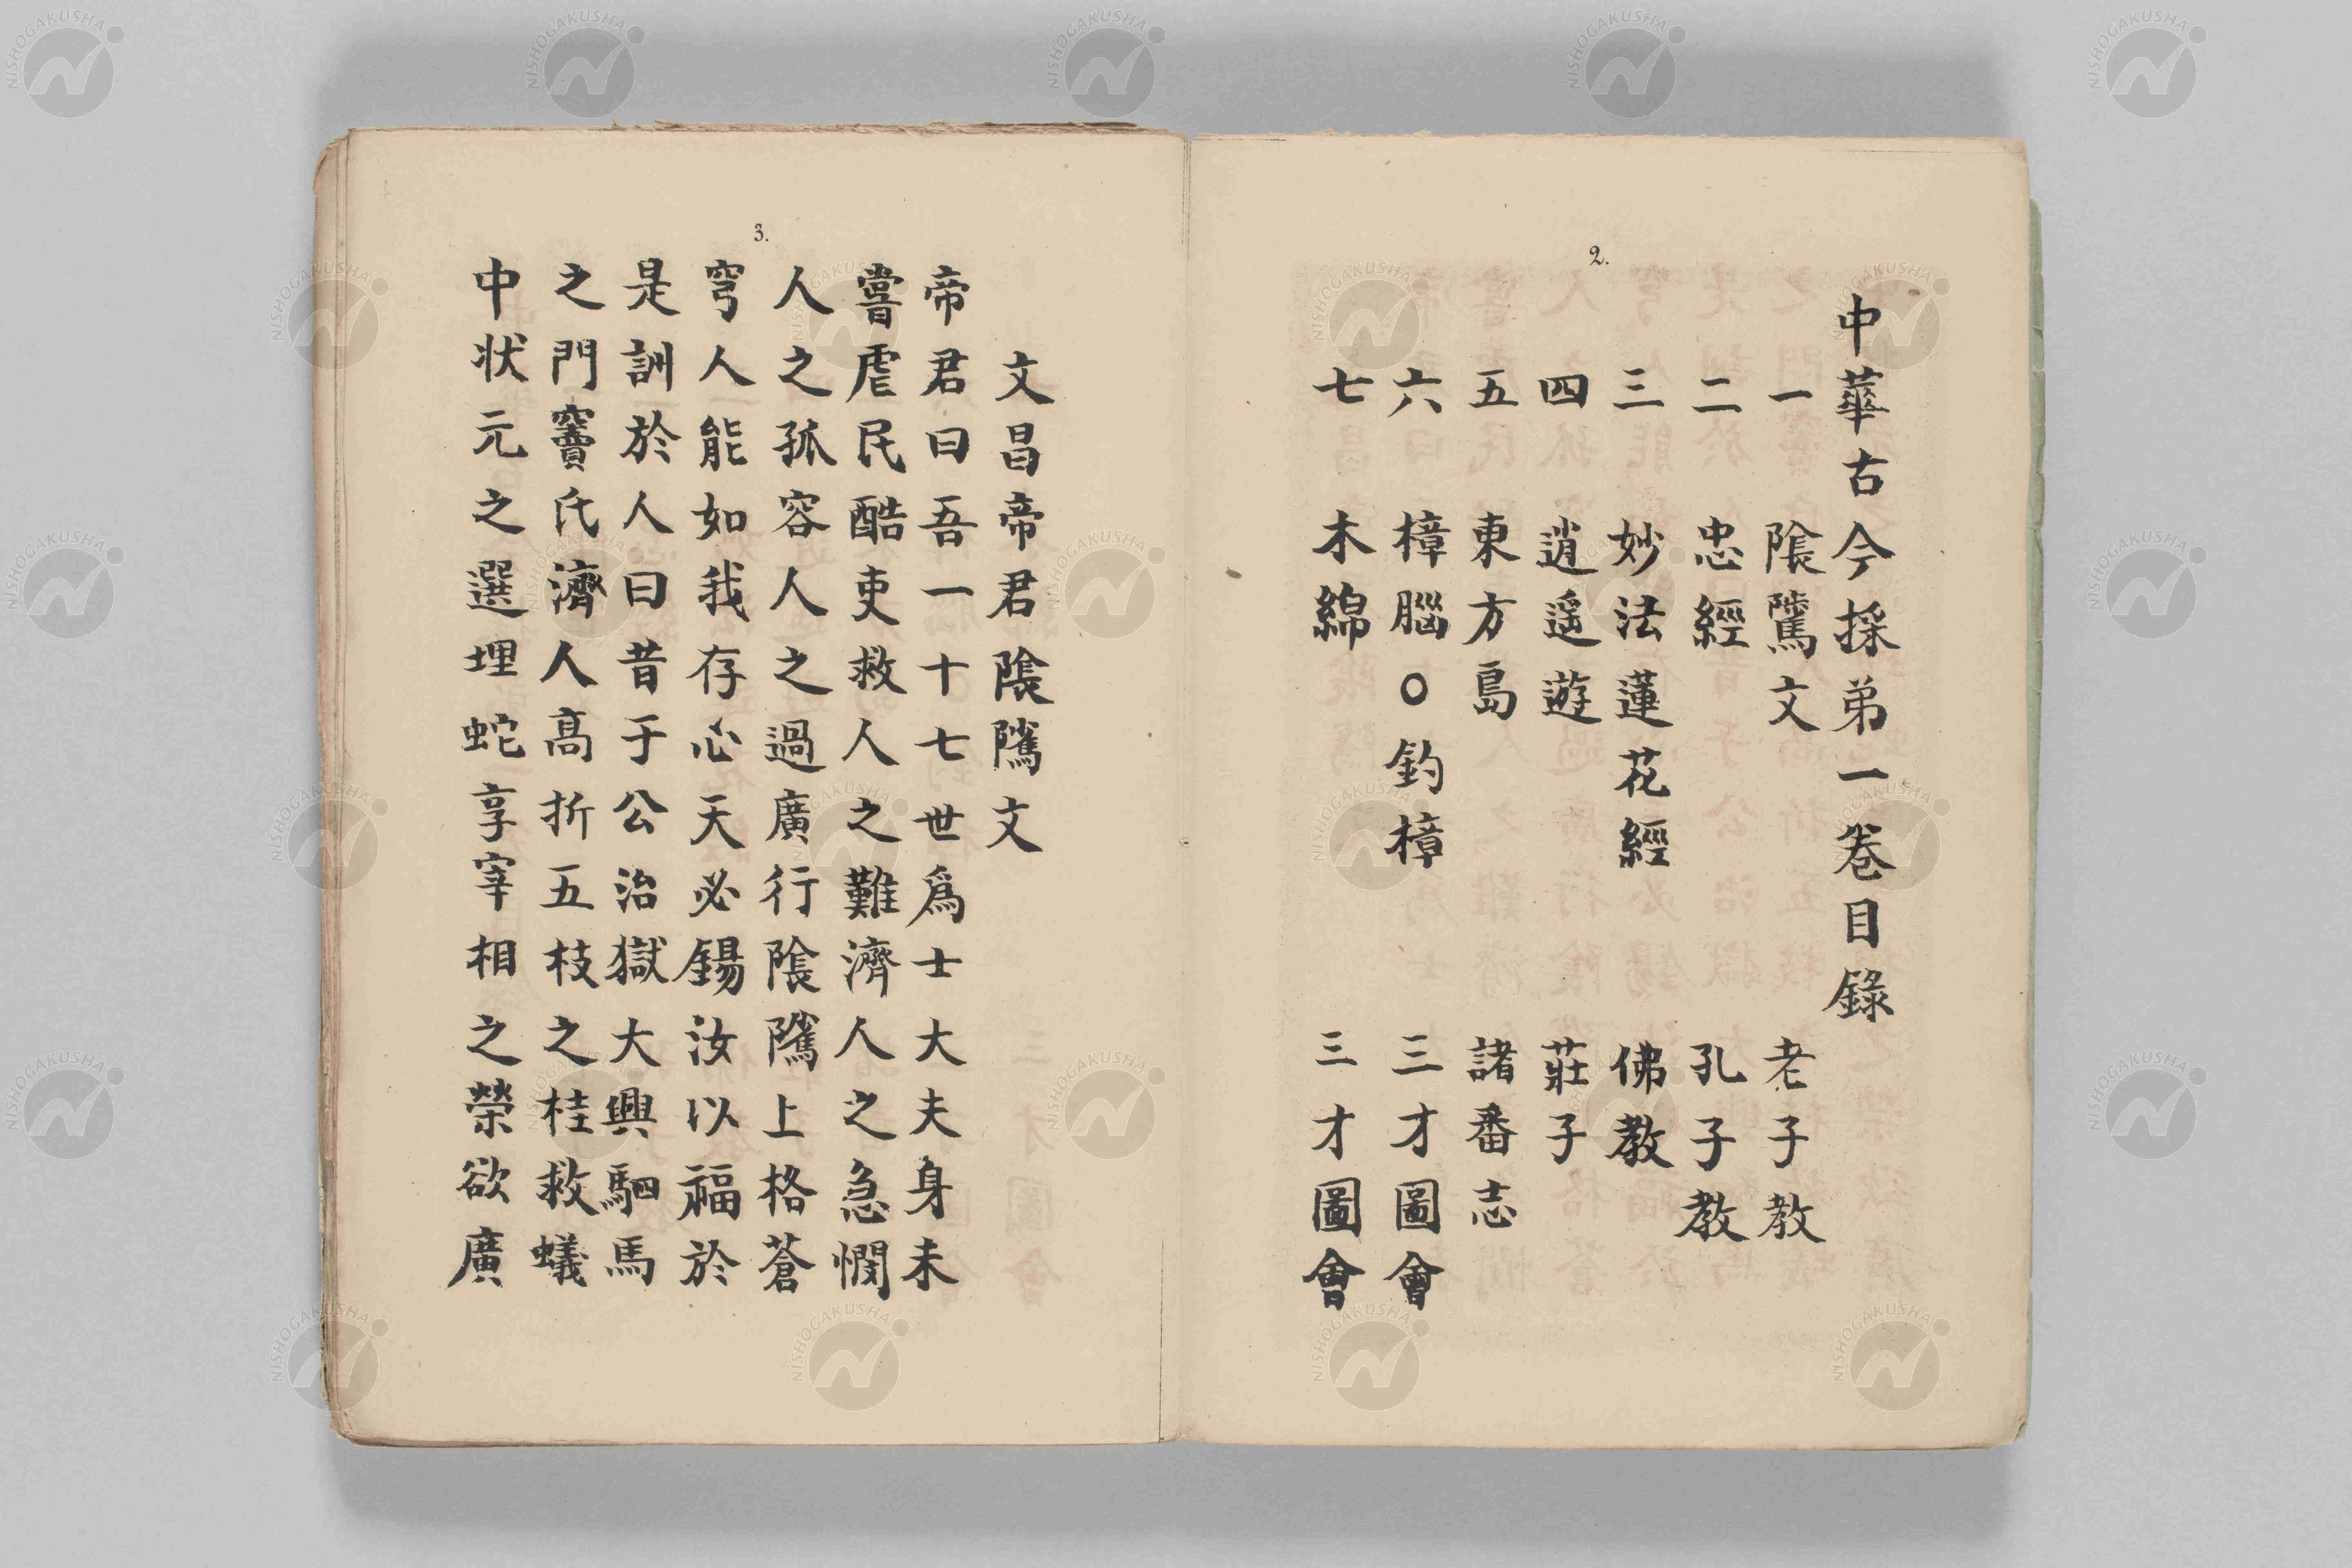 2.
中華古今採弟一卷目錄
一 陰騭文 老子教
二 忠經 孔子教
三 妙法蓮花經 佛教
四 逍遥遊 莊子
五 東方島 諸番志
六 樟腦○釣樟 三才圖會
七 木綿 三才圖會
3.
文昌帝君陰隲文
帝君曰吾一十七世爲士大夫身未
嘗虐民酷吏救人之難濟人之急憫
人之孤容人之過廣行陰隲上格蒼
穹人能如我存心天必錫汝以福於
是訓於人曰昔于公治獄大興駟馬
之門竇氏濟人高折五枝之桂救蟻
中状元之選埋蛇享宰相之榮欲廣